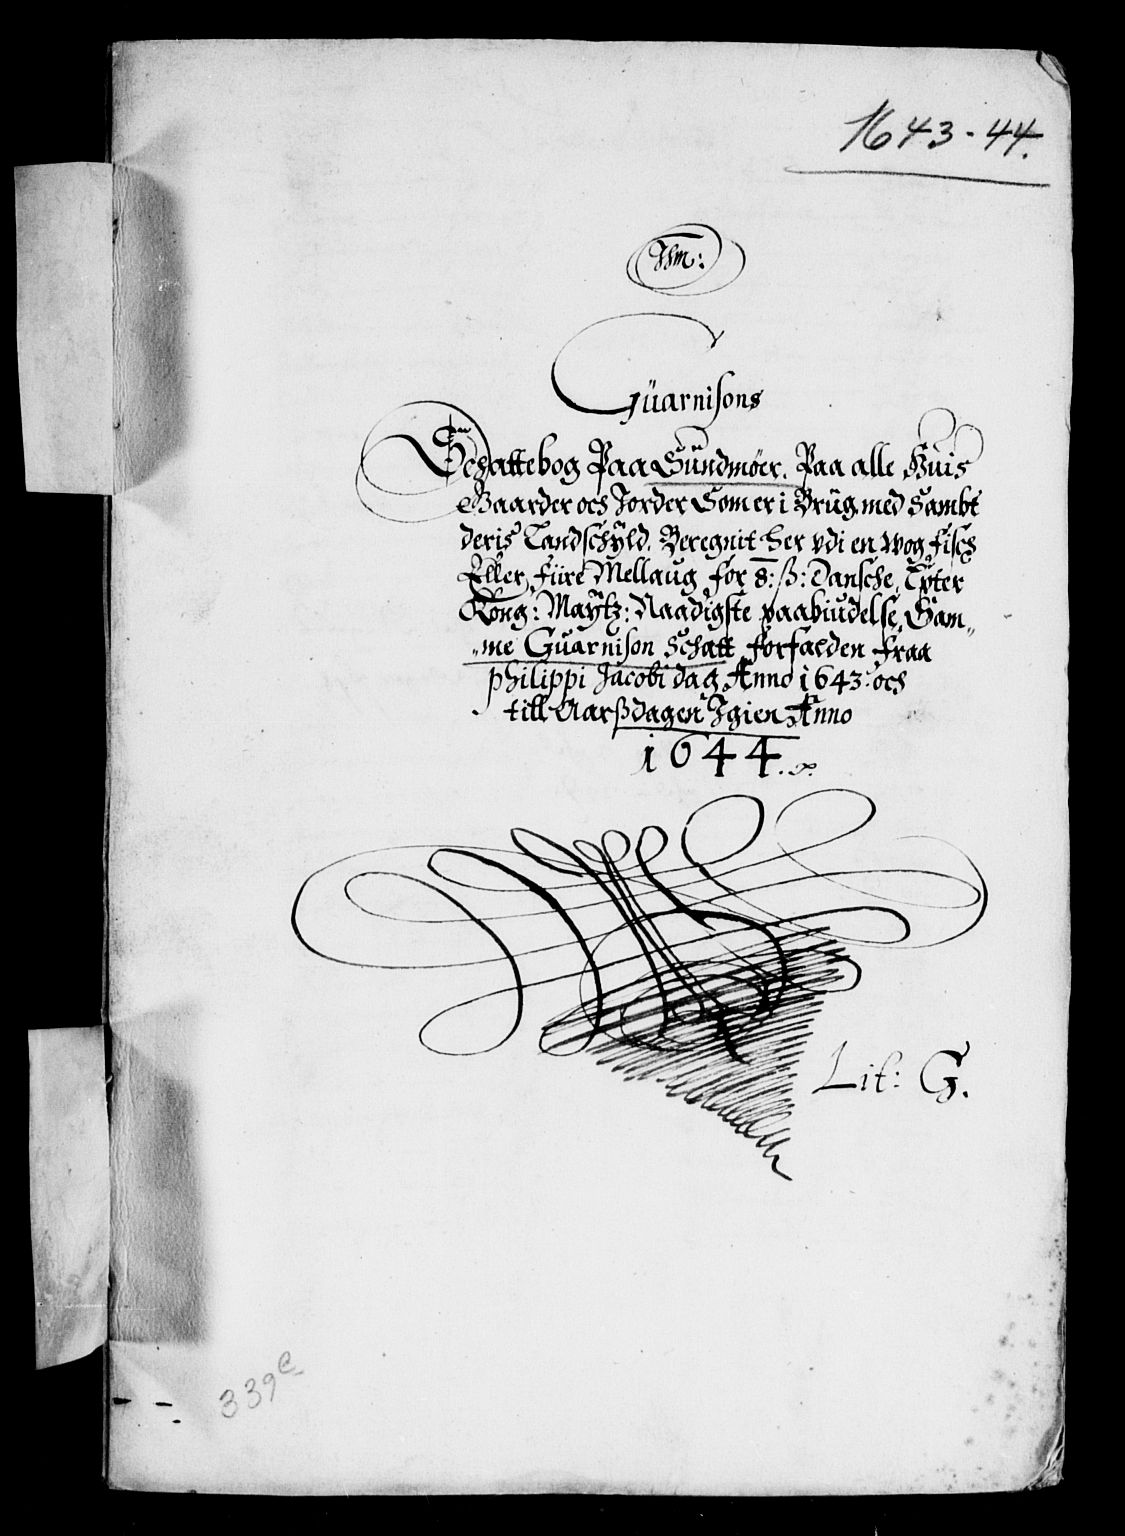 1643-44.
Ihm:
Guarnisons
Schattebog Paa Sündmöer, Paa alle Huis
Gaarder och Jorder Som er i Brüg med Sambt
deris Landschÿld, Beregnit her vdi en wog fisch
Eller, Füre Mellaug for 8: ß: Dansche, Epter
Kong: Maÿtz: Naadigste paabiudelse, Sam„
„me Guarnison Schatt forfalden fraa
philippi Jacobi dag Anno 1643: och
till Aarßdagen Igien Anno
1644.
Lit: G.
339e